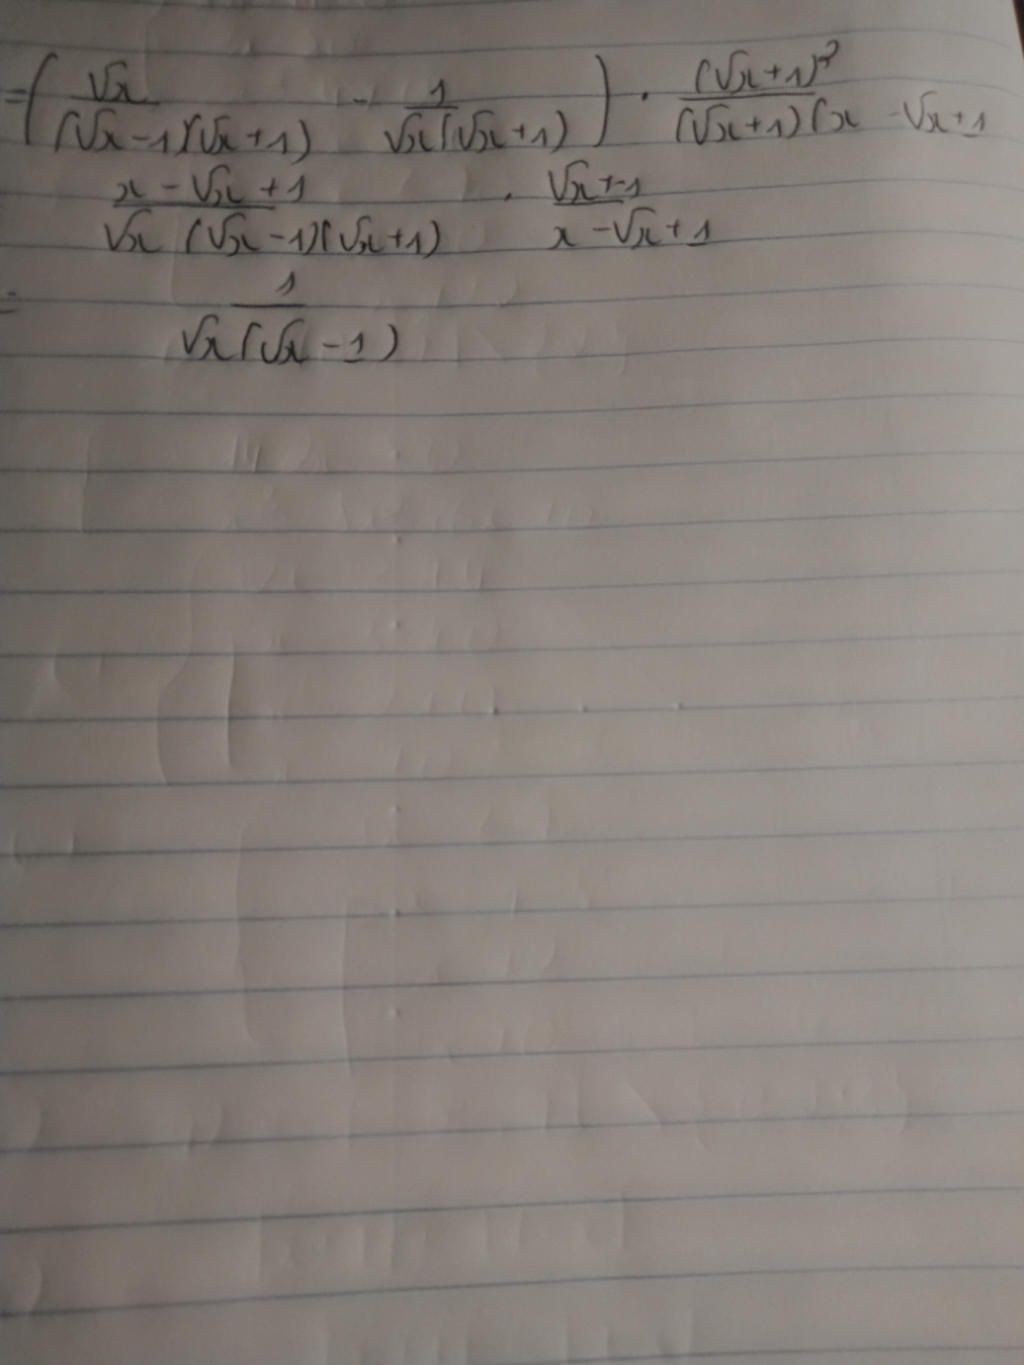 = ( √x / (√x - 1)(√x + 1) - 1 / √x(√x + 1) ) . (√x + 1)² / (√x + 1)(x - √x + 1
x - √x + 1 / √x (√x - 1)(√x + 1) . √x + 1 / x - √x + 1
= 1 / √x(√x - 1)